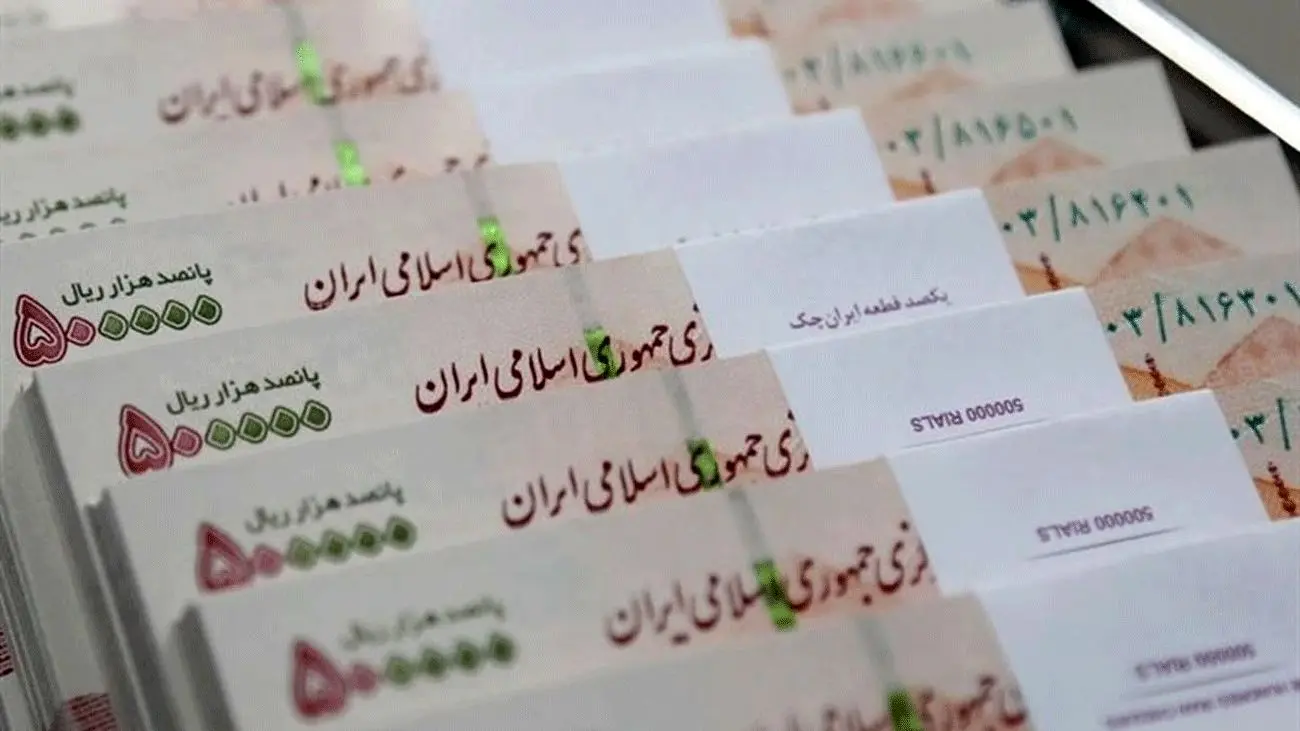 جمهوری اسلامی ایران
۰۳/۸۱۶۶۰۱
پانصد هزار ریال
۰۳/۸۱۶۵۰۱
پانصد هزار ریال
۵۰۰۰۰۰
جمهوری اسلامی ایران
۰۳/۸۱۶۴۰۱
پانصد هزار ریال
۵۰۰۰۰۰
جمهوری اسلامی ایران
یکصد قطعه ایران چک
۰۳/۸۱۶۳۰۱
پانصد هزار ریال
۵۰۰۰۰۰
جمهوری اسلامی ایران
500000 RIALS
۰۳/
پانصد هزار ریال
۵۰۰۰۰۰
جمهوری اسلامی ایران
500000 RIALS
جمهوری
500000 RIALS